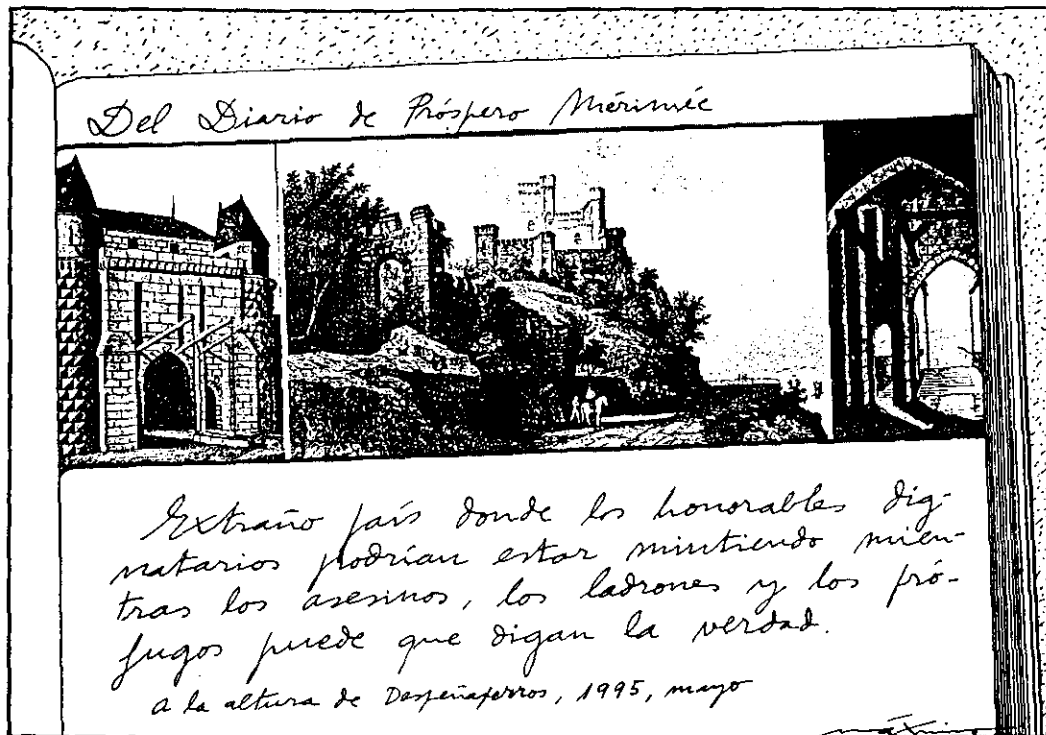 Del Diario de Próspero Mérimée
Extraño país donde los honorables dig-
natarios podrían estar mintiendo mien-
tras los asesinos, los ladrones y los pró-
fugos puede que digan la verdad.
a la altura de Despeñaperros, 1995, mayo
máximo